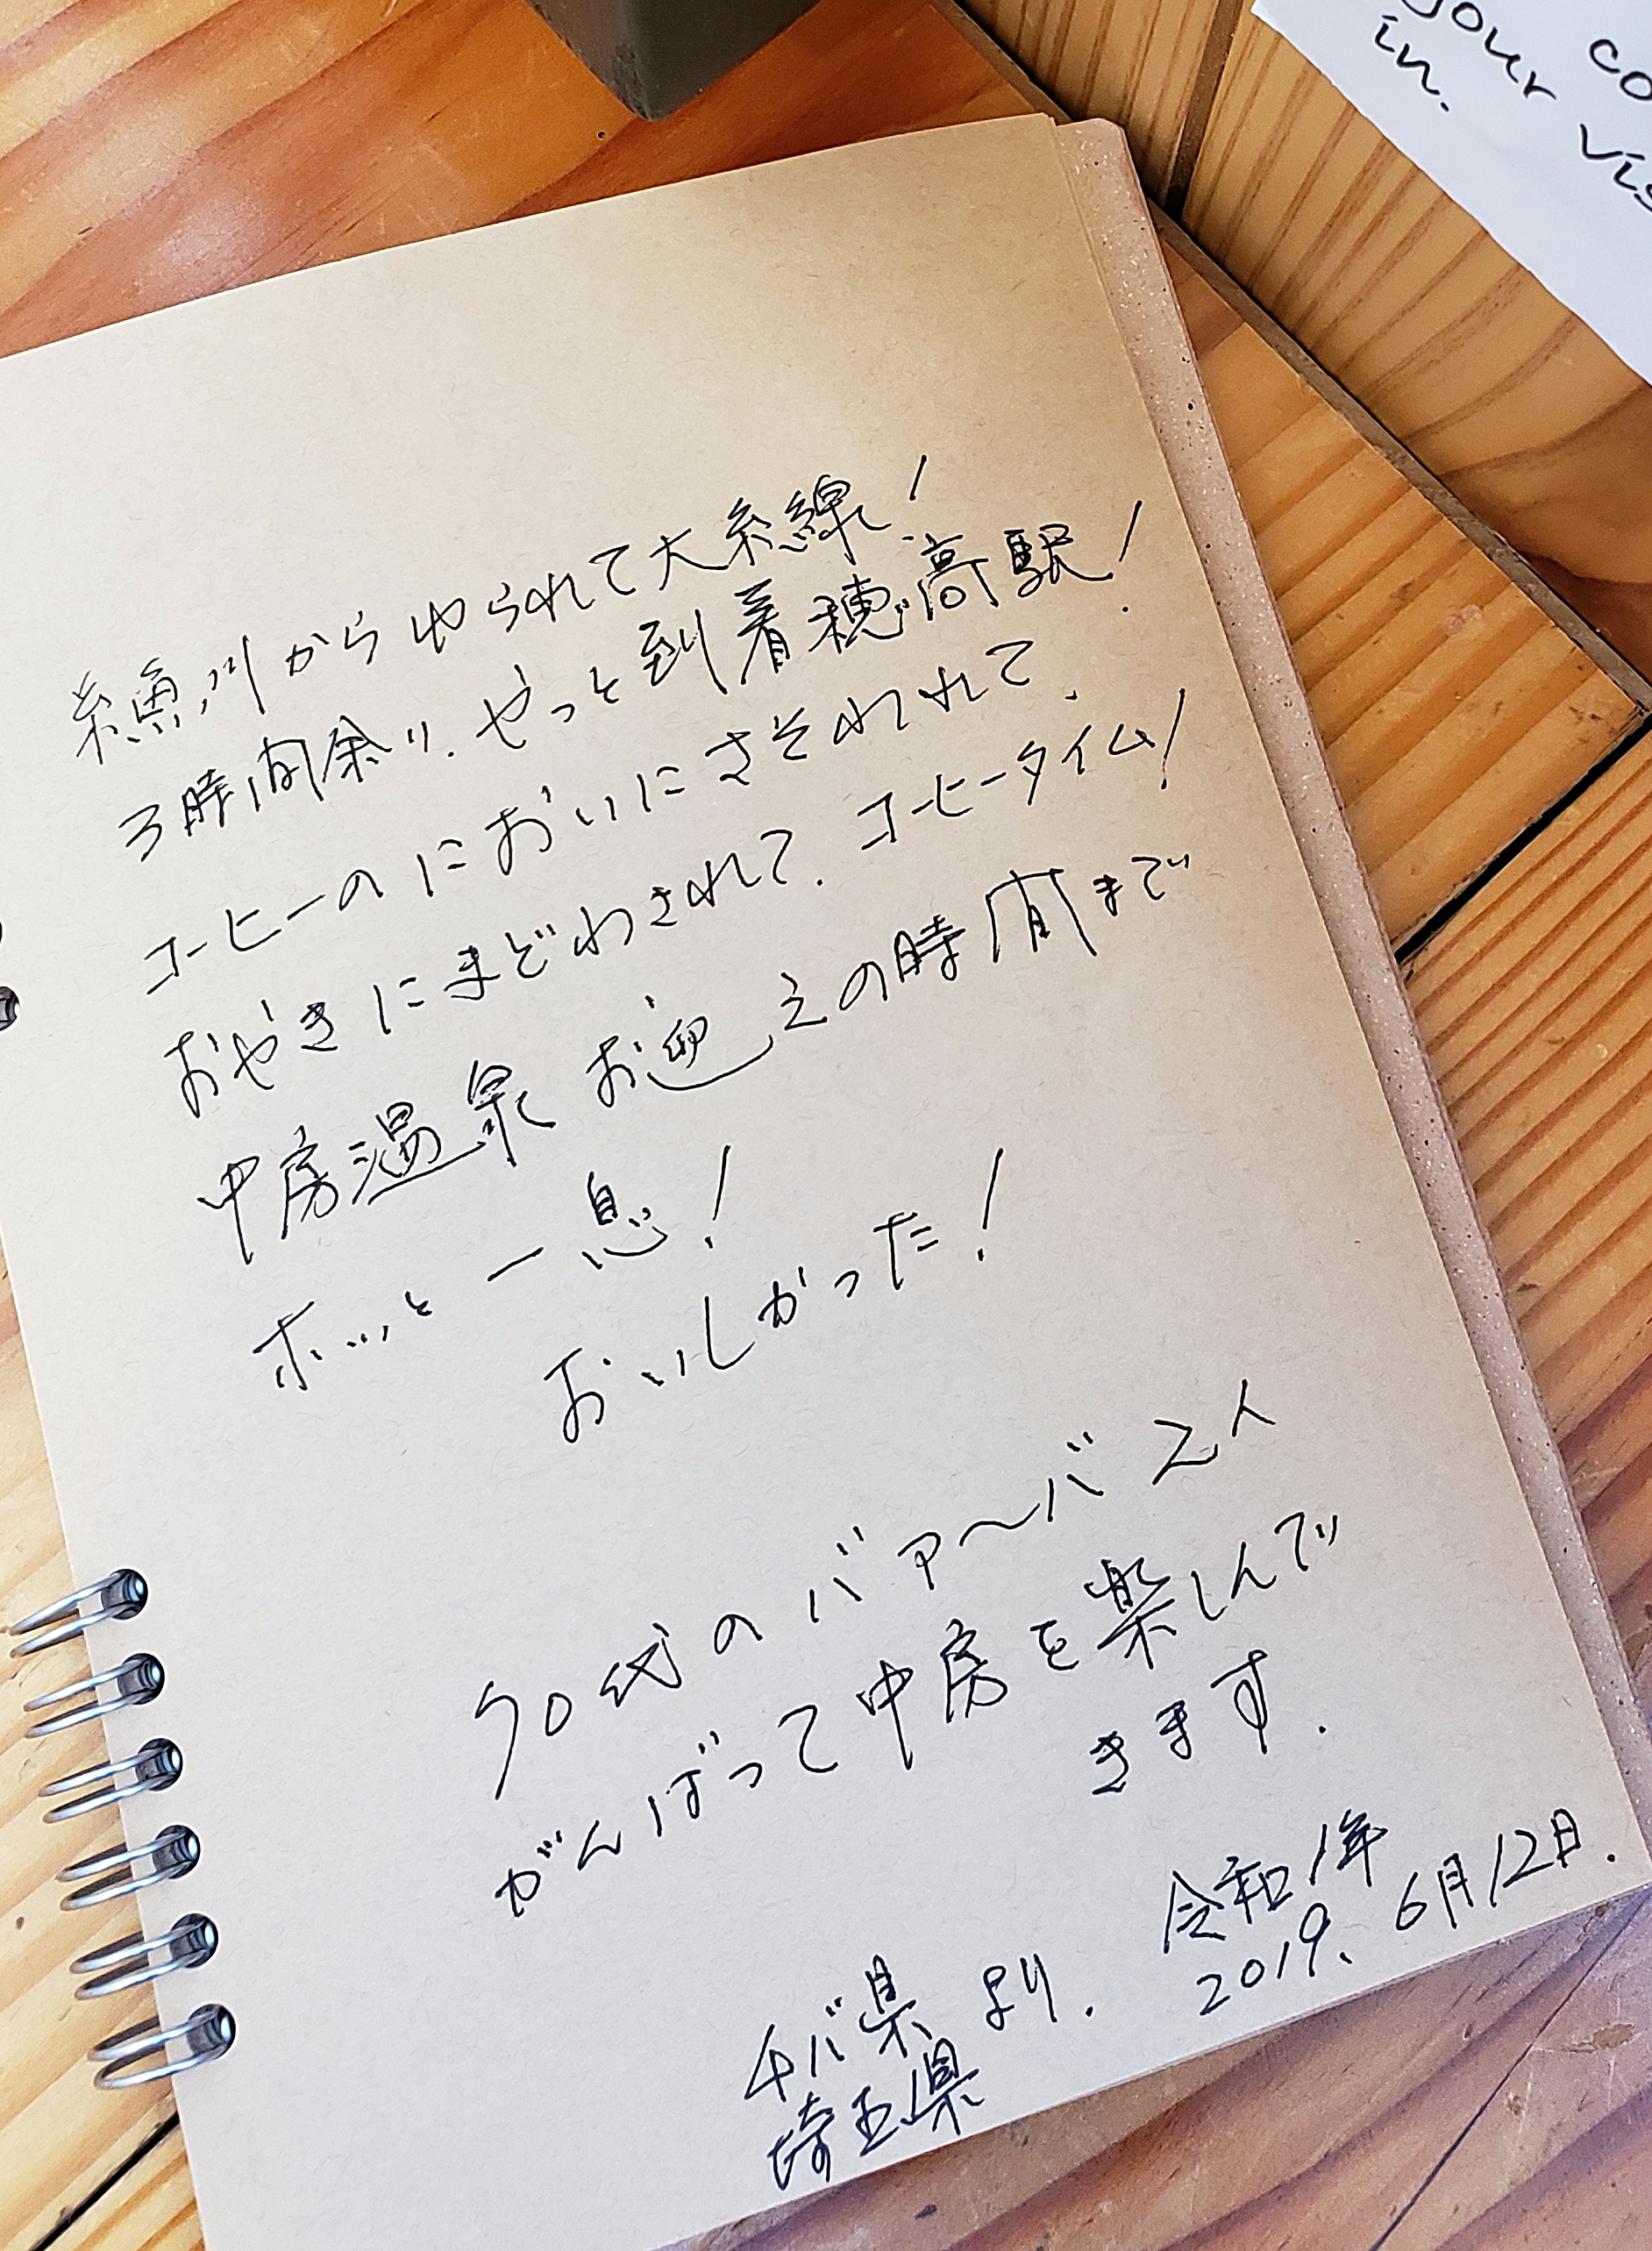 co
your vis
in.
糸魚川からゆられて大糸線!
3時間余り.やっと到着穂高駅!
コーヒーのにおいにさそわれて、
おやきにまどわされて.コーヒータイム!
中房温泉お迎えの時間まで
ホッと一息!
おいしかった!
70代のバァ〜バ2人
がんばって中房を楽しんで
きます.
令和1年
2019、6月12日.
チバ県より.
埼玉県